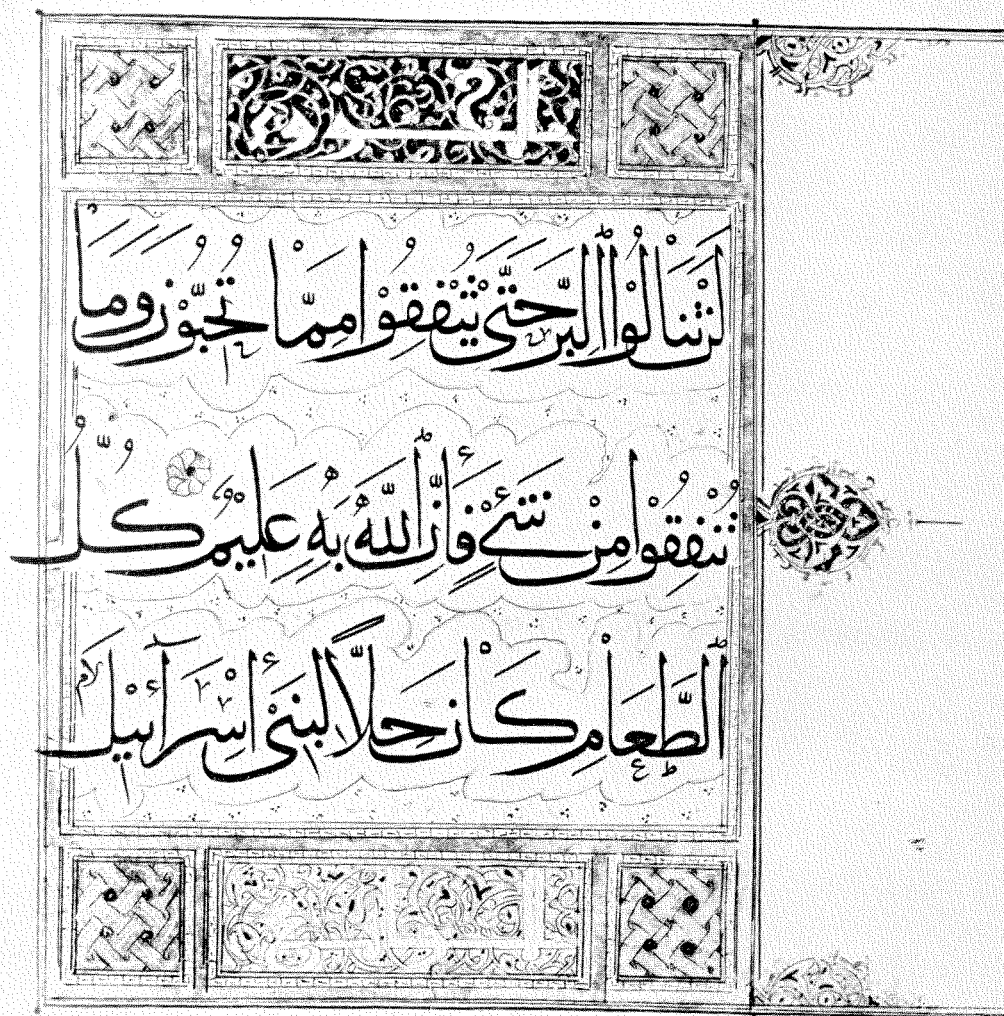 لَنْ تَنَالُوْا الْبِرَّ حَتَّى تُنْفِقُوْا مِمَّا تُحِبُّوْنَ وَمَا
تُنْفِقُوْا مِنْ شَيْءٍ فَإِنَّ اللَّهَ بِهِ عَلِيْمٌ كُلُّ
الطَّعَامِ كَانَ حِلًّا لِبَنِيْ إِسْرَآئِيْلَ